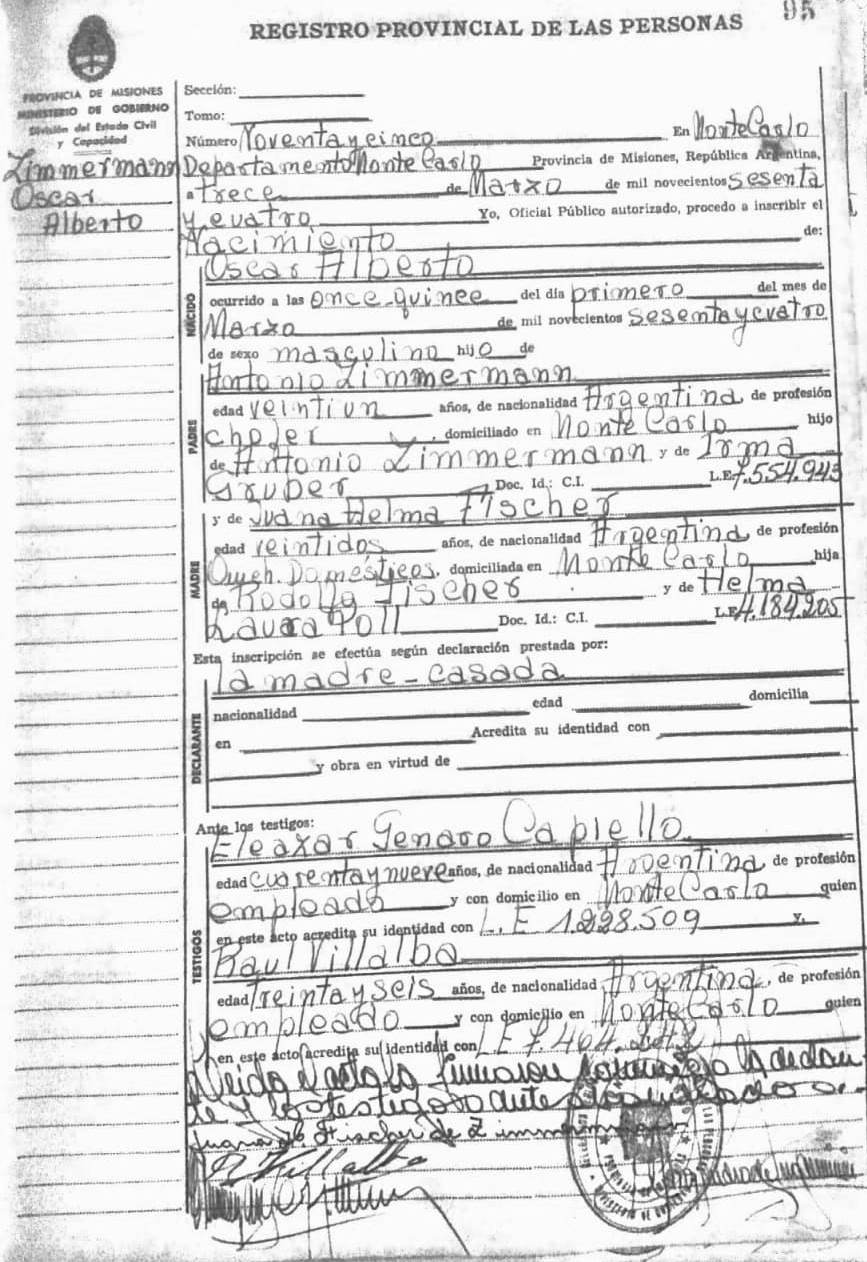 95
REGISTRO PROVINCIAL DE LAS PERSONAS
PROVINCIA DE MISIONES
MINISTERIO DE GOBIERNO
División del Estado Civil
y Capacidad
Zimmermann
Oscar
Alberto
Sección:
Tomo:
Número Noventa y cinco En Monte Carlo
Departamento Monte Carlo Provincia de Misiones, República Argentina,
a trece de Marzo de mil novecientos sesenta
y cuatro Yo, Oficial Público autorizado, procedo a inscribir el
Nacimiento de:
Oscar Alberto
NACIDO
ocurrido a las once-quince del día primero del mes de
Marzo de mil novecientos sesenta y cuatro
de sexo masculino hijo de
Antonio Zimmermann
PADRE
edad veintiun años, de nacionalidad Argentina de profesión
chofer, domiciliado en Monte Carlo hijo
de Antonio Zimmermann y de Irma
Gruber Doc. Id.: C.I. L.E. 7.554.943
y de Juana Helma Fischer
MADRE
edad veintidos años, de nacionalidad Argentina de profesión
Queh. Domésticos, domiciliada en Monte Carlo hija
de Rodolfo Fischer y de Helma
Laura Poll Doc. Id.: C.I. L.E. 4.184.205
Esta inscripción se efectúa según declaración prestada por:
la madre - casada
DECLARANTE
nacionalidad edad domicilia
en Acredita su identidad con
y obra en virtud de
Ante los testigos:
Eleazar Genaro Capiello
TESTIGOS
edad cuarenta y nueve años, de nacionalidad Argentina de profesión
empleado y con domicilio en Monte Carlo quien
en este acto acredita su identidad con L.E 1.228.509 y,
Raul Villalba
edad treinta y seis años, de nacionalidad Argentina, de profesión
empleado y con domicilio en Monte Carlo quien
en este acto acredita su identidad con L E 7.464.
Leida el acta la
y los testigos
Juana Fischer de Zimmermann
R Villalba